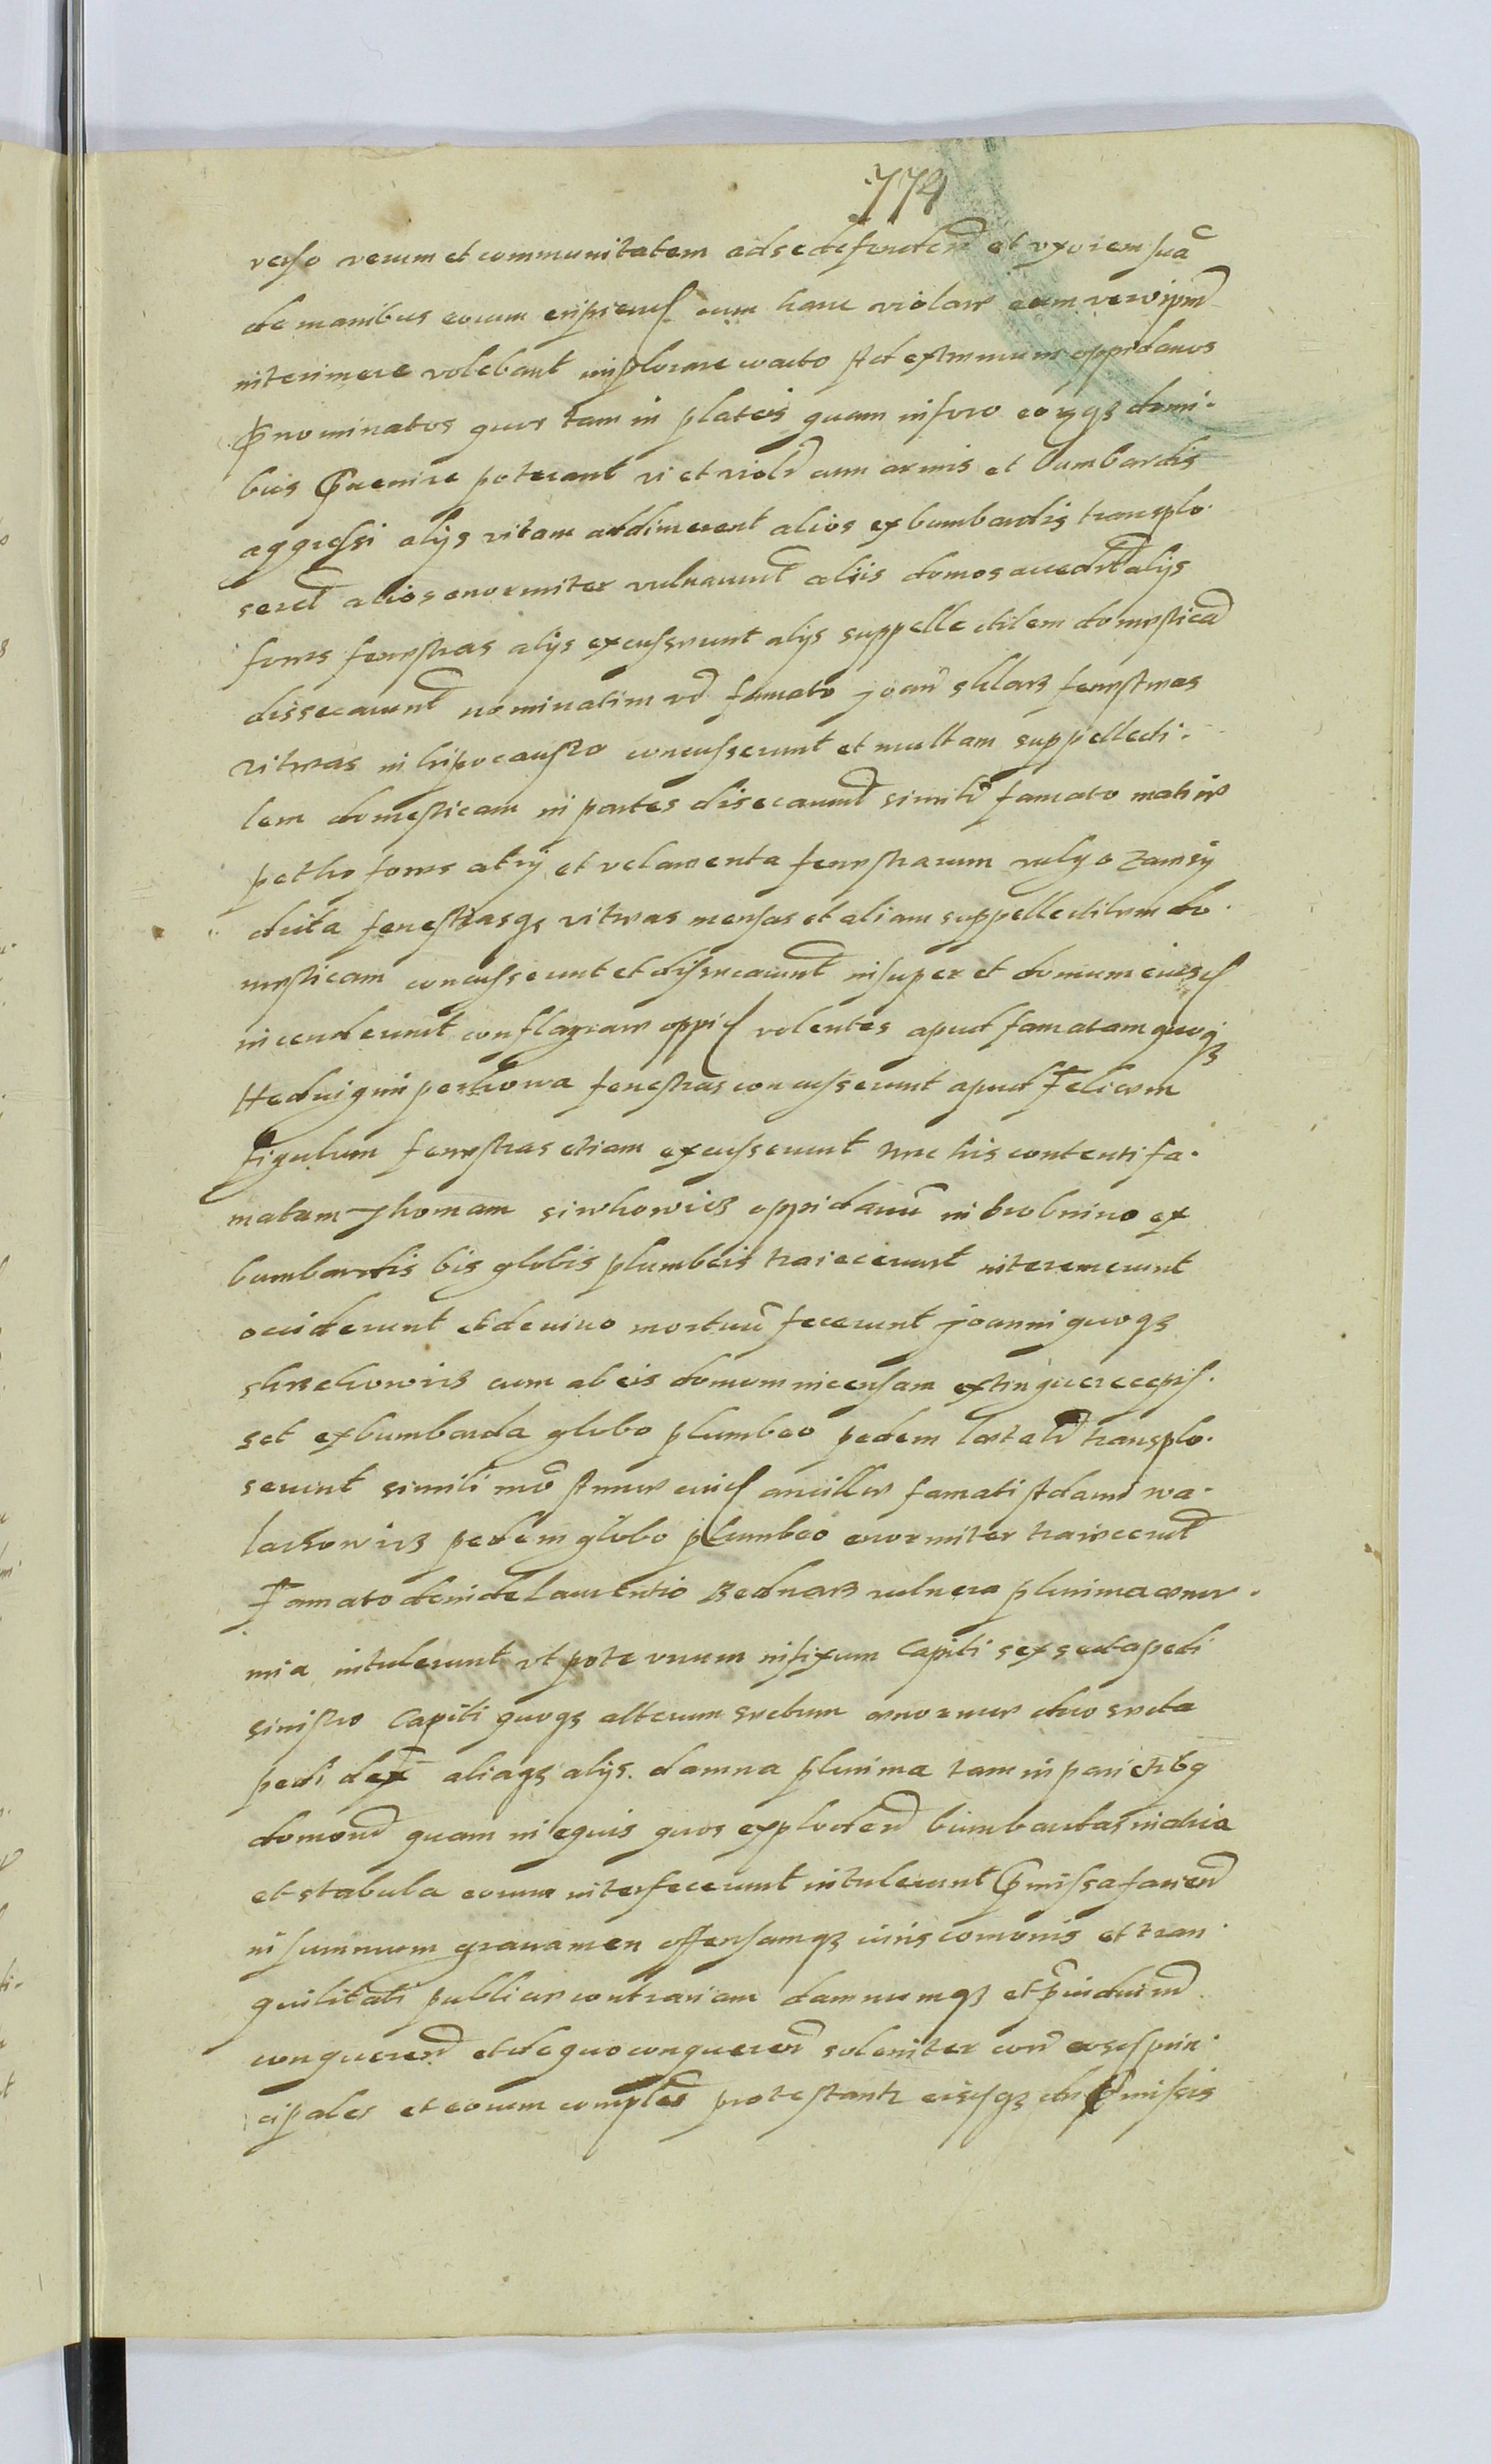 774
verso verum et communitatem ad se defendend et vxorem sua
de manibus eorum eripiend cum hanc violare eum vero ipm
interimere volebant implorare coacto Ad extremum oppidanos
pnominatos quos tam in plateis quam in foro eorqz domi-
bus Puenire poterant vi et viold cum armis et bumbardis
aggressi alijs vitam addimerent alios ex bumbardis transplo-
serut alios enormiter vulnauerunt aliis domos accedt alijs
fores fenestras alijs excusserunt alijs suppellectilem domesticā
dissecauerunt nominatim vd famato Joan sklarz fenestras
vitreas in hipocausto concusserunt et multam suppellecti-
lem domesticam in partes disecauerunt similr famato mathie
petho fores atrij et velamenta fenestrarum vulgo zamsy
dicta fenestrasqz vitreas mensas et aliam suppellectilem do-
mesticam concusserunt et dissecauerunt insuper et domum eiusd
incenderunt conflagrare oppid volentes apud famatam quoqz
Heduigim perkowa fenestras concusserunt apud Felicem
figulum fenestras etiam excusserunt nec his contenti fa-
matam Thomam oppidanū in brobnino ex
bumbardis bis globis plumbeis traiecerunt interemerunt
occiderunt et de viuo mortuū fecerunt Joanni quoqz
cum ab eis domum incensam extinguere cepis-
set ex bumbarda globo plumbeo pedem transplo-
serunt simili mō Annae eiusd ancillae famati Adami wa-
larkowicz pedem globo plumbeo enormiter traiecerunt
Famato deinde Laurentio Bednarz vulnera plurima enor-
mia intulerunt vt pote vnum infixum Capiti sex secta pedi
sinistro Capiti quoqz alterum sectum enorme duo secta
pedi dext aliaqz alijs damna plurima tam in parietibq
domorū quam in equis quos explodend bumbardas in atria
et stabula eorum interfecerunt intulerunt Pmissa faciend
in summum grauamen offensamqz iuris comonis et tran-
quilitati publicae contrariam damnumqz et piudicium
conquerend et de quo conquerend soleniter cora eosd prin-
cipales et eorum complices protestantr eisdqz de Pmissis